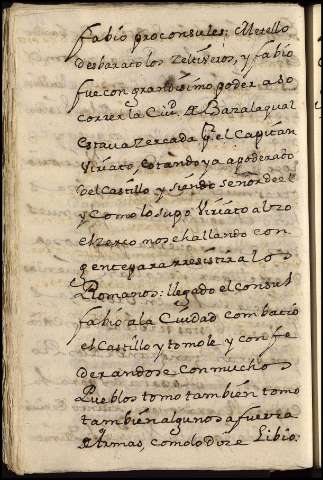 fabio proconsules: Metello
desbarato los Zeltiveros, y fabio
fue con grandissimo poder a so
correr la Ciud. de Baza la qual
estava Zercada p. el Capitan
Viriato, estando ya apoderado
del Castillo y siendo señor de el
y Como lo supo Viriato alzo
el zerco no se hallando con
gente para rresistir a los
Rromanos: llegado el consul
fabio a la Ciudad combatio
el Castillo y tomole y confe
derandose con muchos
Pueblos tomo tambien tomo
tambien algunos a fuerza
de Armas, como lo dize Libio: